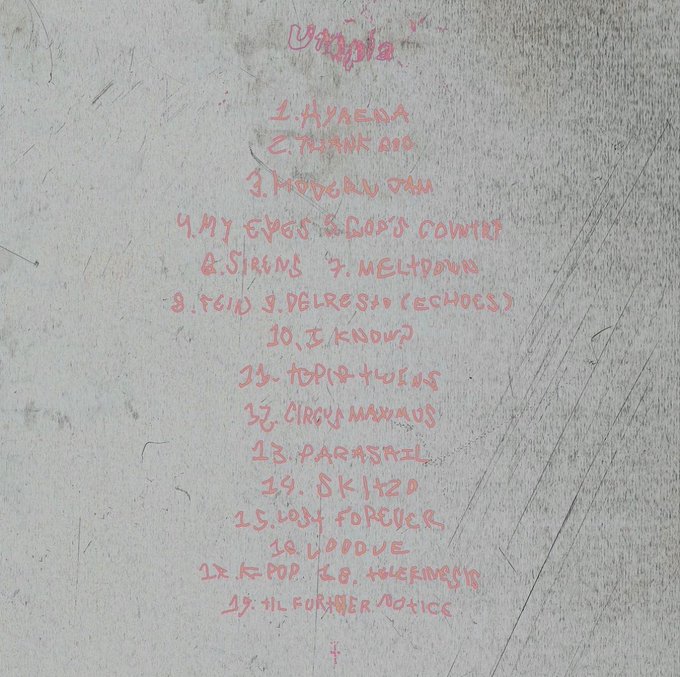 Utopia
1. HYAENA
2. THANK GOD
3. MODERN JAM
4. MY EYES 5. GOD'S COUNTRY
6. SIRENS 7. MELTDOWN
8. FE!N 9. DELRESTO (ECHOES)
10. I KNOW?
11. TOPIA TWINS
12. CIRCUS MAXIMUS
13. PARASAIL
14. SKITZO
15. LOST FOREVER
16. LOOOVE
17. K-POP 18. TELEKINESIS
19. TIL FURTHER NOTICE